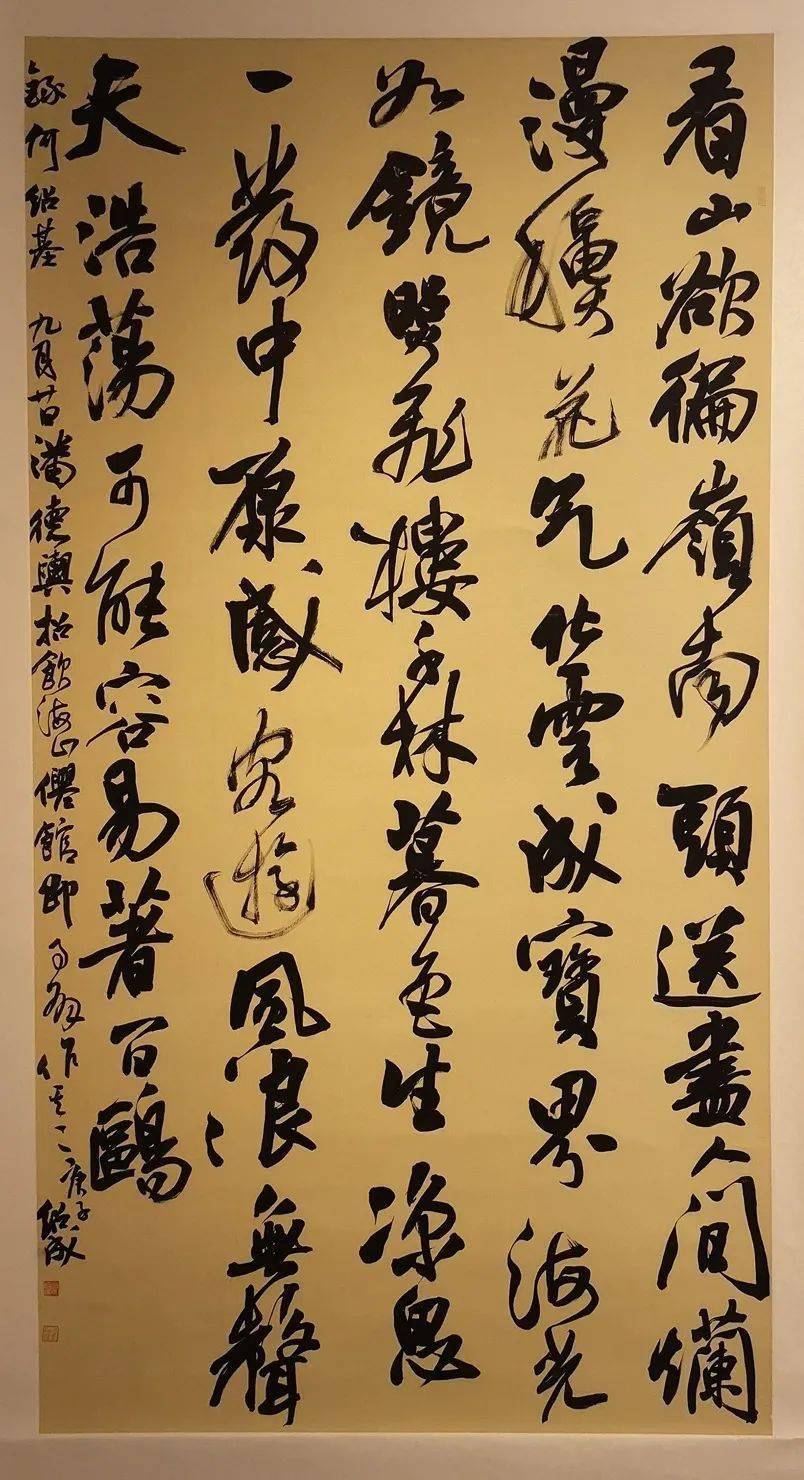 看山欲徧嶺南頭送盡人間爛
漫龝花气化雲成寶界海光
如鏡照飛樓千林暮色生涼思
一發中原感客遊風浪無聲
天浩蕩可能容易著百鷗
錄何紹基 九月廿日潘德輿招飲海山僊館即事作其二 庚子 紹成